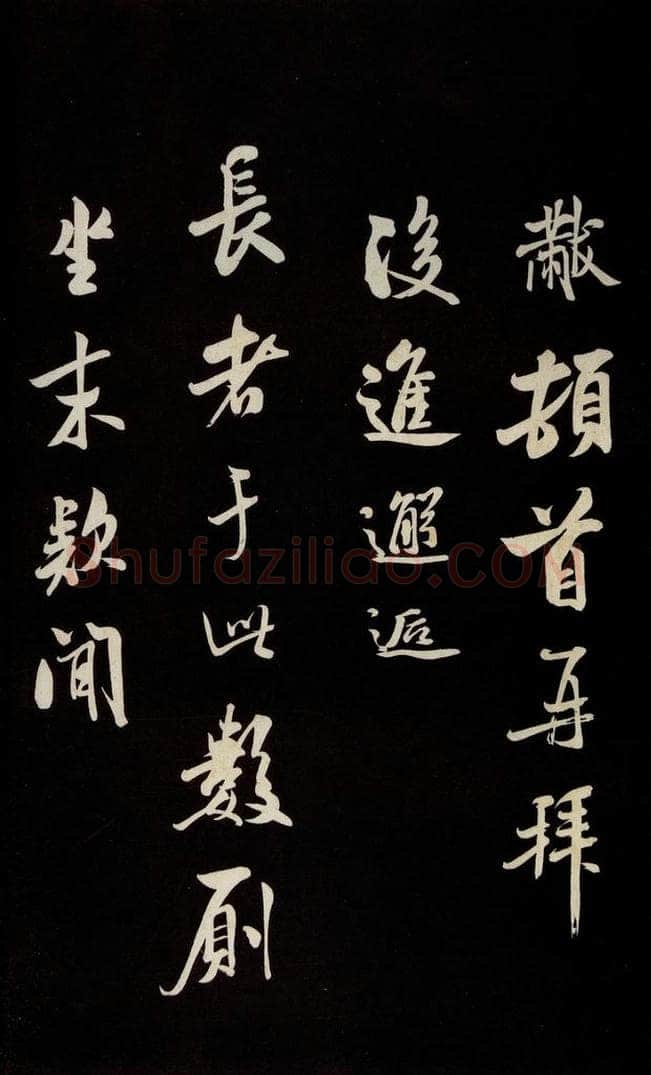 黻頓首再拜
後進邂逅
長者于此數廁
坐末款聞
shufaziliao.COM